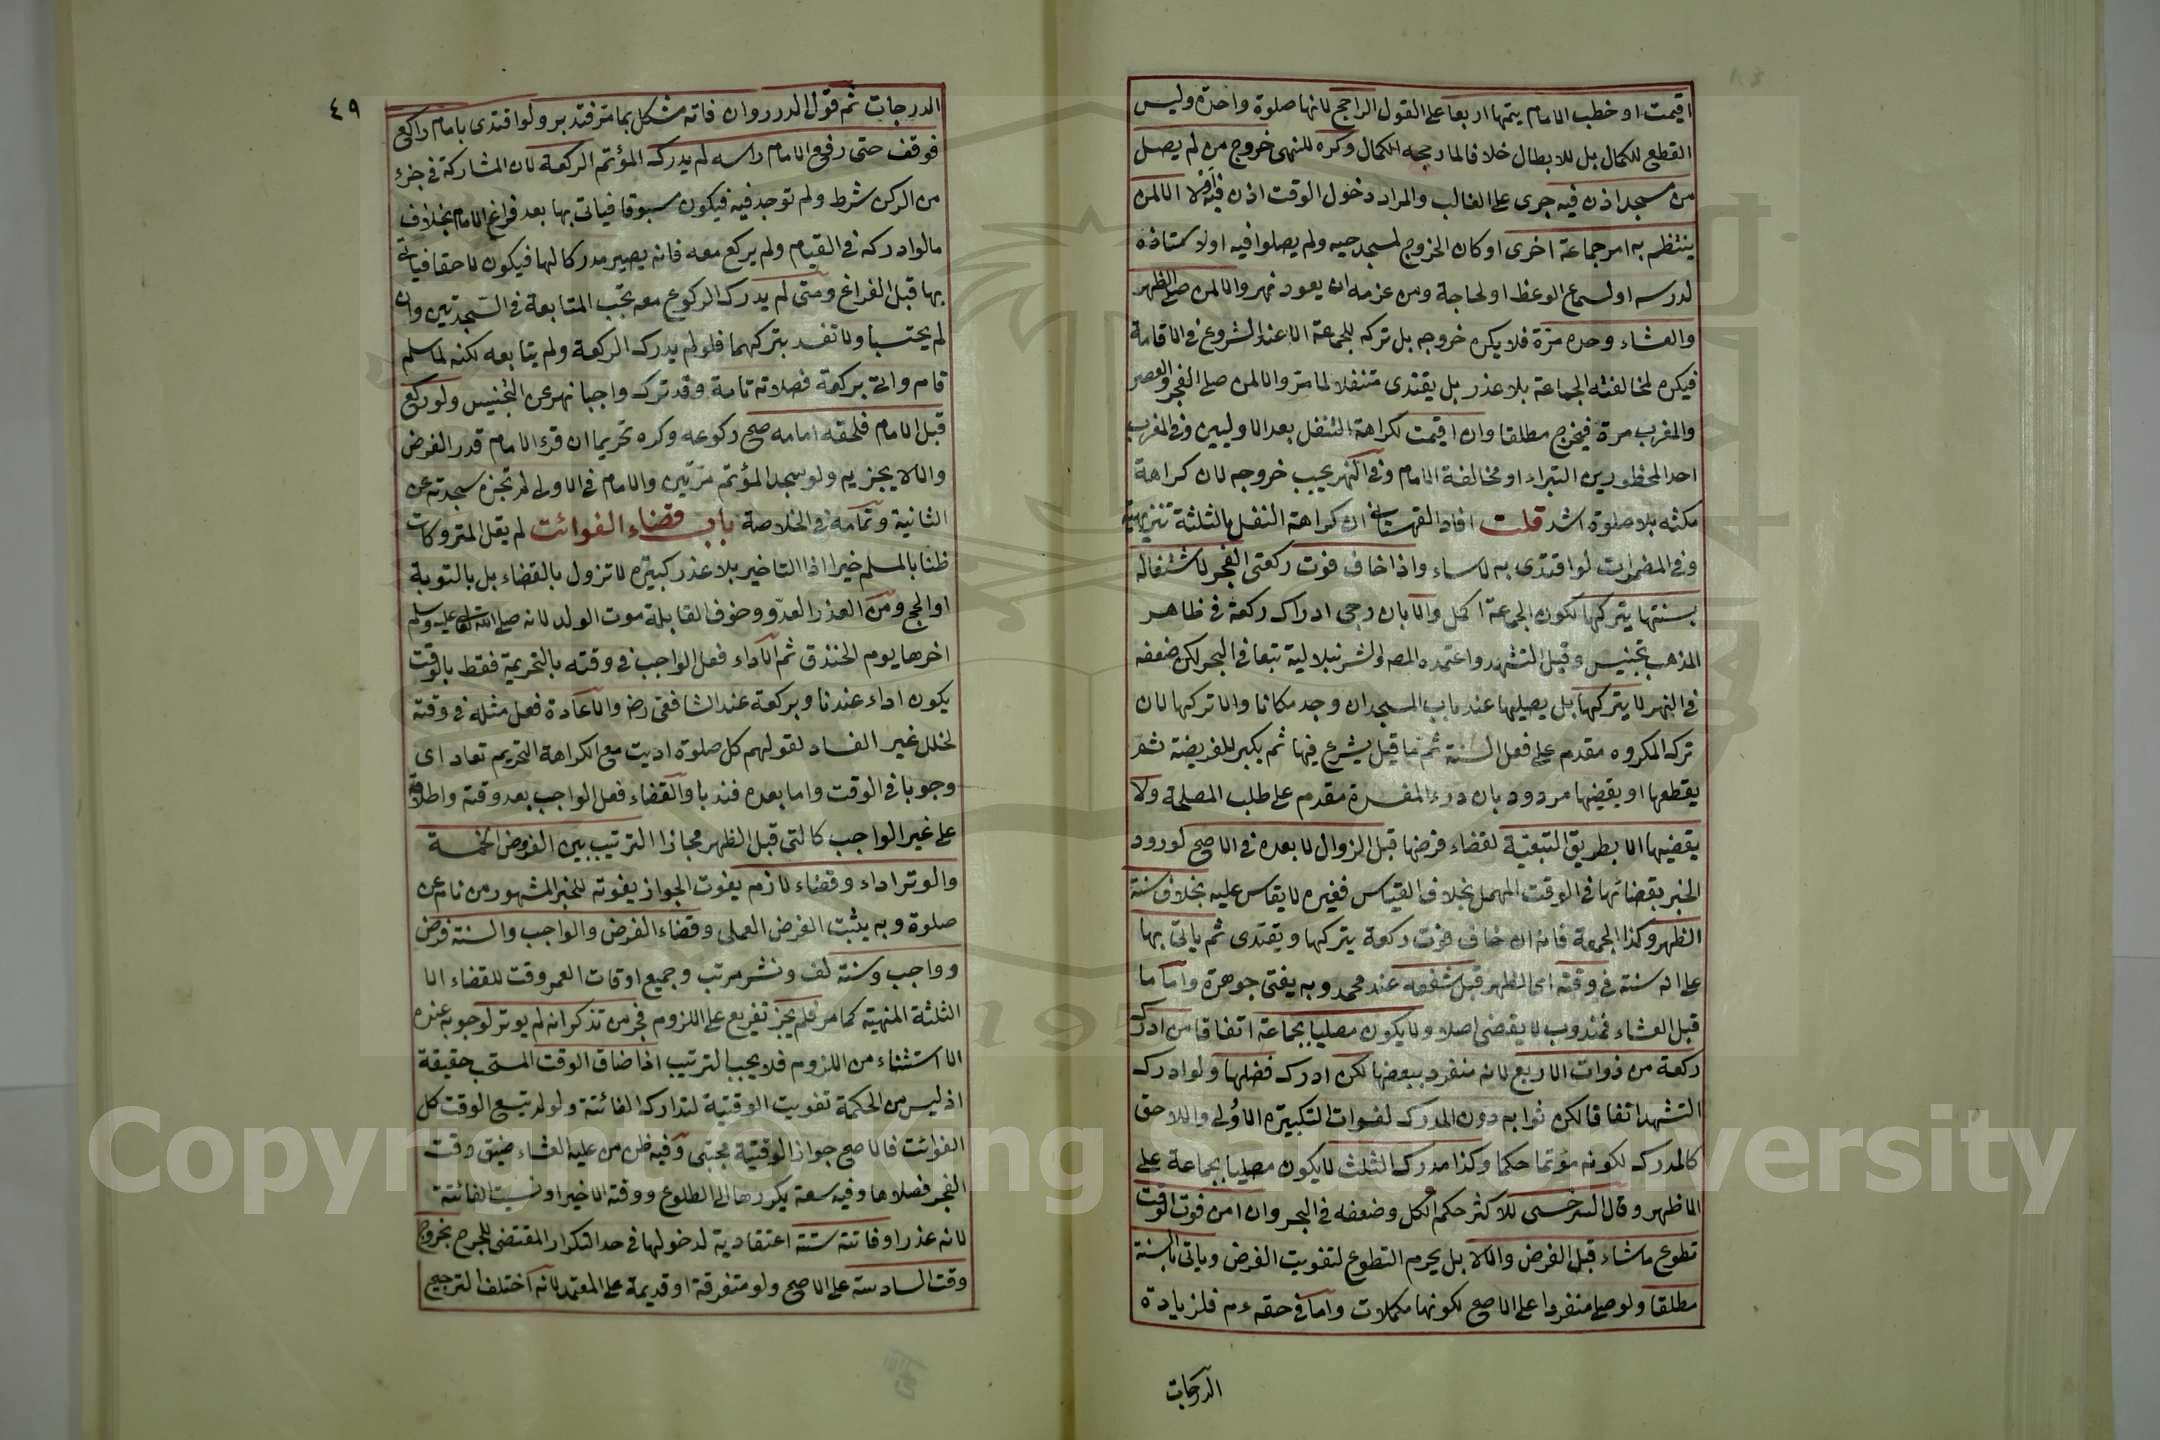 اقيمت او خطب الامام يتمها اربعا على القول الراجح لانها صلوة واحدة وليس
القطع للاكمال بل للابطال خلافا لما رجحه الكمال وكره للنهى خروج من لم يصل
من مسجد اذن فيه جرى على الغالب والمراد دخول الوقت اذن فيه اولا الا لمن
ينتظم به امر جماعة اخرى او كان الخروج لمسجد حيه ولم يصلوا فيه اولا ستاذه
لدرسه او لسماع الوعظ او لحاجة ومن عزمه ان يعود نهر والا لمن صلى الظهر
والعشاء وحده مرة فلا يكره خروجه بل تركه للجماعة الا عند الشروع في الاقامة
فيكره لمخالفته الجماعة بلا عذر بل يقتدى متنفلا لما مر والا لمن صلى الفجر والعصر
والمغرب مرة فيخرج مطلقا وان اقيمت لكراهة التنفل بعد الاوليين وفى المغرب
احد المحظورين البتراء او مخالفة الامام وفى النهر يجب خروجه لان كراهة
مكثه بلا صلوة اشد قلت افاد القهستانى ان كراهة النفل بالثلثة تنزيهية
وفى المضمرات لو اقتدى به لاساء واذا خاف فوت ركعتى الفجر لاشتغاله
بسنتها يتركها لكون الجماعة اكمل والا بان رجى ادراك ركعة فى ظاهر
المذهب تجنيس وقبل التشهد واعتمده المصه والشرنبلالية تبعا فى البحر لكن ضعفه
فى النهر لا يتركها بل يصليها عند باب المسجد ان وجد مكانا والا تركها لان
ترك المكروه مقدم على فعل السنة ثم ما قيل يشرع فيها ثم يكبر للفريضة ثم
يقطعها او يقضيها مردود بان درء المفسدة مقدم على طلب المصلحة ولا
يقضيها الا بطريق التبعية لقضاء فرضها قبل الزوال لا بعده فى الاصح لورود
الخبر بقضائها فى الوقت المهمل بخلاف القياس فغيره لا يقاس عليه بخلاف سنة
الظهر وكذا الجمعة فانه ان خاف فوت ركعة يتركها ويقتدى ثم ياتى بها
على انه سنة فى وقته اى الظهر قبل شفعه عند محمد وبه يفتى جوهرة واما ما
قبل العشاء فمندوب لا يقضى اصلا ولا يكون مصليا بجماعة اتفاقا من ادرك
ركعة من ذوات الاربع لانه منفرد ببعضها لكن ادرك فضلها ولو ادرك
التشهد اتفاقا لكن ثوابه دون المدرك لفوات التكبيرة الاولى واللاحق
كالمدرك لكونه مؤتما حكما وكذا مدرك الثلث لا يكون مصليا بجماعة على
الاظهر وقال السرخسى للاكثر حكم الكل وضعفه فى البحر وان امن فوت الوقت
تطوع ما شاء قبل الفرض والا لا بل يحرم التطوع لتفويت الفرض وياتى بالسنة
مطلقا ولو صلى منفردا على الاصح لكونها مكملات واما فى حقه عم فلزيادة
الدرجات
٤٩
الدرجات ثم قول الدرر وان فاته مشكل بما مر فتدبر ولو اقتدى بامام راكع
فوقف حتى رفع الامام راسه لم يدرك المؤتم الركعة لان المشاركة فى جزء
من الركن شرط ولم توجد فيه فيكون مسبوقا فياتى بها بعد فراغ الامام بخلاف
ما لو ادركه فى القيام ولم يركع معه فانه يصير مدركا لها فيكون لاحقا فياتى
بها قبل الفراغ ومتى لم يدرك الركوع معه تجب المتابعة فى السجدتين وان
لم يحتسبا ولا تفسد بتركهما فلو لم يدرك الركعة ولم يتابعه لكنه لما سلم
قام واتى بركعة فصلاته تامة وقد ترك واجبا نهر عن التجنيس ولو ركع
قبل الامام فلحقه امامه صح ركوعه وكره تحريما ان قرء الامام قدر الفرض
والا لا يجزيه ولو سجد المؤتم مرتين والامام فى الاولى لم تجزه سجدته عن
الثانية وتمامه فى الخلاصة باب قضاء الفوائت لم يقل المتروكات
ظنا بالمسلم خيرا اذا التاخير بلا عذر كبيرة لا تزول بالقضاء بل بالتوبة
او الحج ومن العذر العدو وخوف القابلة موت الولد لانه صلى الله تعالى عليه وسلم
اخرها يوم الخندق ثم الاداء فعل الواجب فى وقته بالتحريمة فقط بالوقت
يكون اداء عندنا وبركعة عند الشافعى رض والاعادة فعل مثله فى وقته
لخلل غير الفساد لقولهم كل صلوة اديت مع الكراهة التحريم تعاد اى
وجوبا فى الوقت واما بعده فندبا والقضاء فعل الواجب بعد وقته واطلاقه
على غير الواجب كالتى قبل الظهر مجازا الترتيب بين الفروض الخمسة
والوتر اداء وقضاء لازم يفوت الجواز بفوته للخبر المشهور من نام عن
صلوة وبه يثبت الفرض العملى وقضاء الفرض والواجب والسنة فرض
وواجب وسنة لف ونشر مرتب وجميع اوقات العمر وقت للقضاء الا
الثلثة المنهية كما مر فلم يجز تفريع على اللزوم فجر من تذكر انه لم يوتر لوجوبه عنده
الا استثناء من اللزوم فلا يجب الترتيب اذا ضاق الوقت المستحب حقيقة
اذ ليس من الحكمة تفويت الوقتية لتدارك الفائتة ولو لم يتسع الوقت كل
الفوائت فالاصح جواز الوقتية مجتبى وفيه ظن من عليه العشاء ضيق وقت
الفجر فصلاها وفيه سعة يكررها الى الطلوع ووقته الاخير او نسيت الفائتة
لانه عذر او فاتته ستة اعتقادية لدخولها فى حد التكرار المقتضى للحرج بخروج
وقت السادسة على الاصح ولو متفرقة او قديمة على المعتمد لانه اختلف الترجيح
Copyright © King Saud University